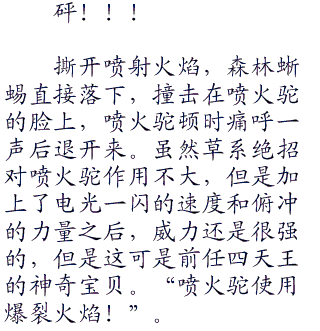 砰！！！
撕开喷射火焰，森林蜥
蜴直接落下，撞击在喷火驼
的脸上，喷火驼顿时痛呼一
声后退开来。虽然草系绝招
对喷火驼作用不大，但是加
上了电光一闪的速度和俯冲
的力量之后，威力还是很强
的，但是这可是前任四天王
的神奇宝贝。“喷火驼使用
爆裂火焰！”。